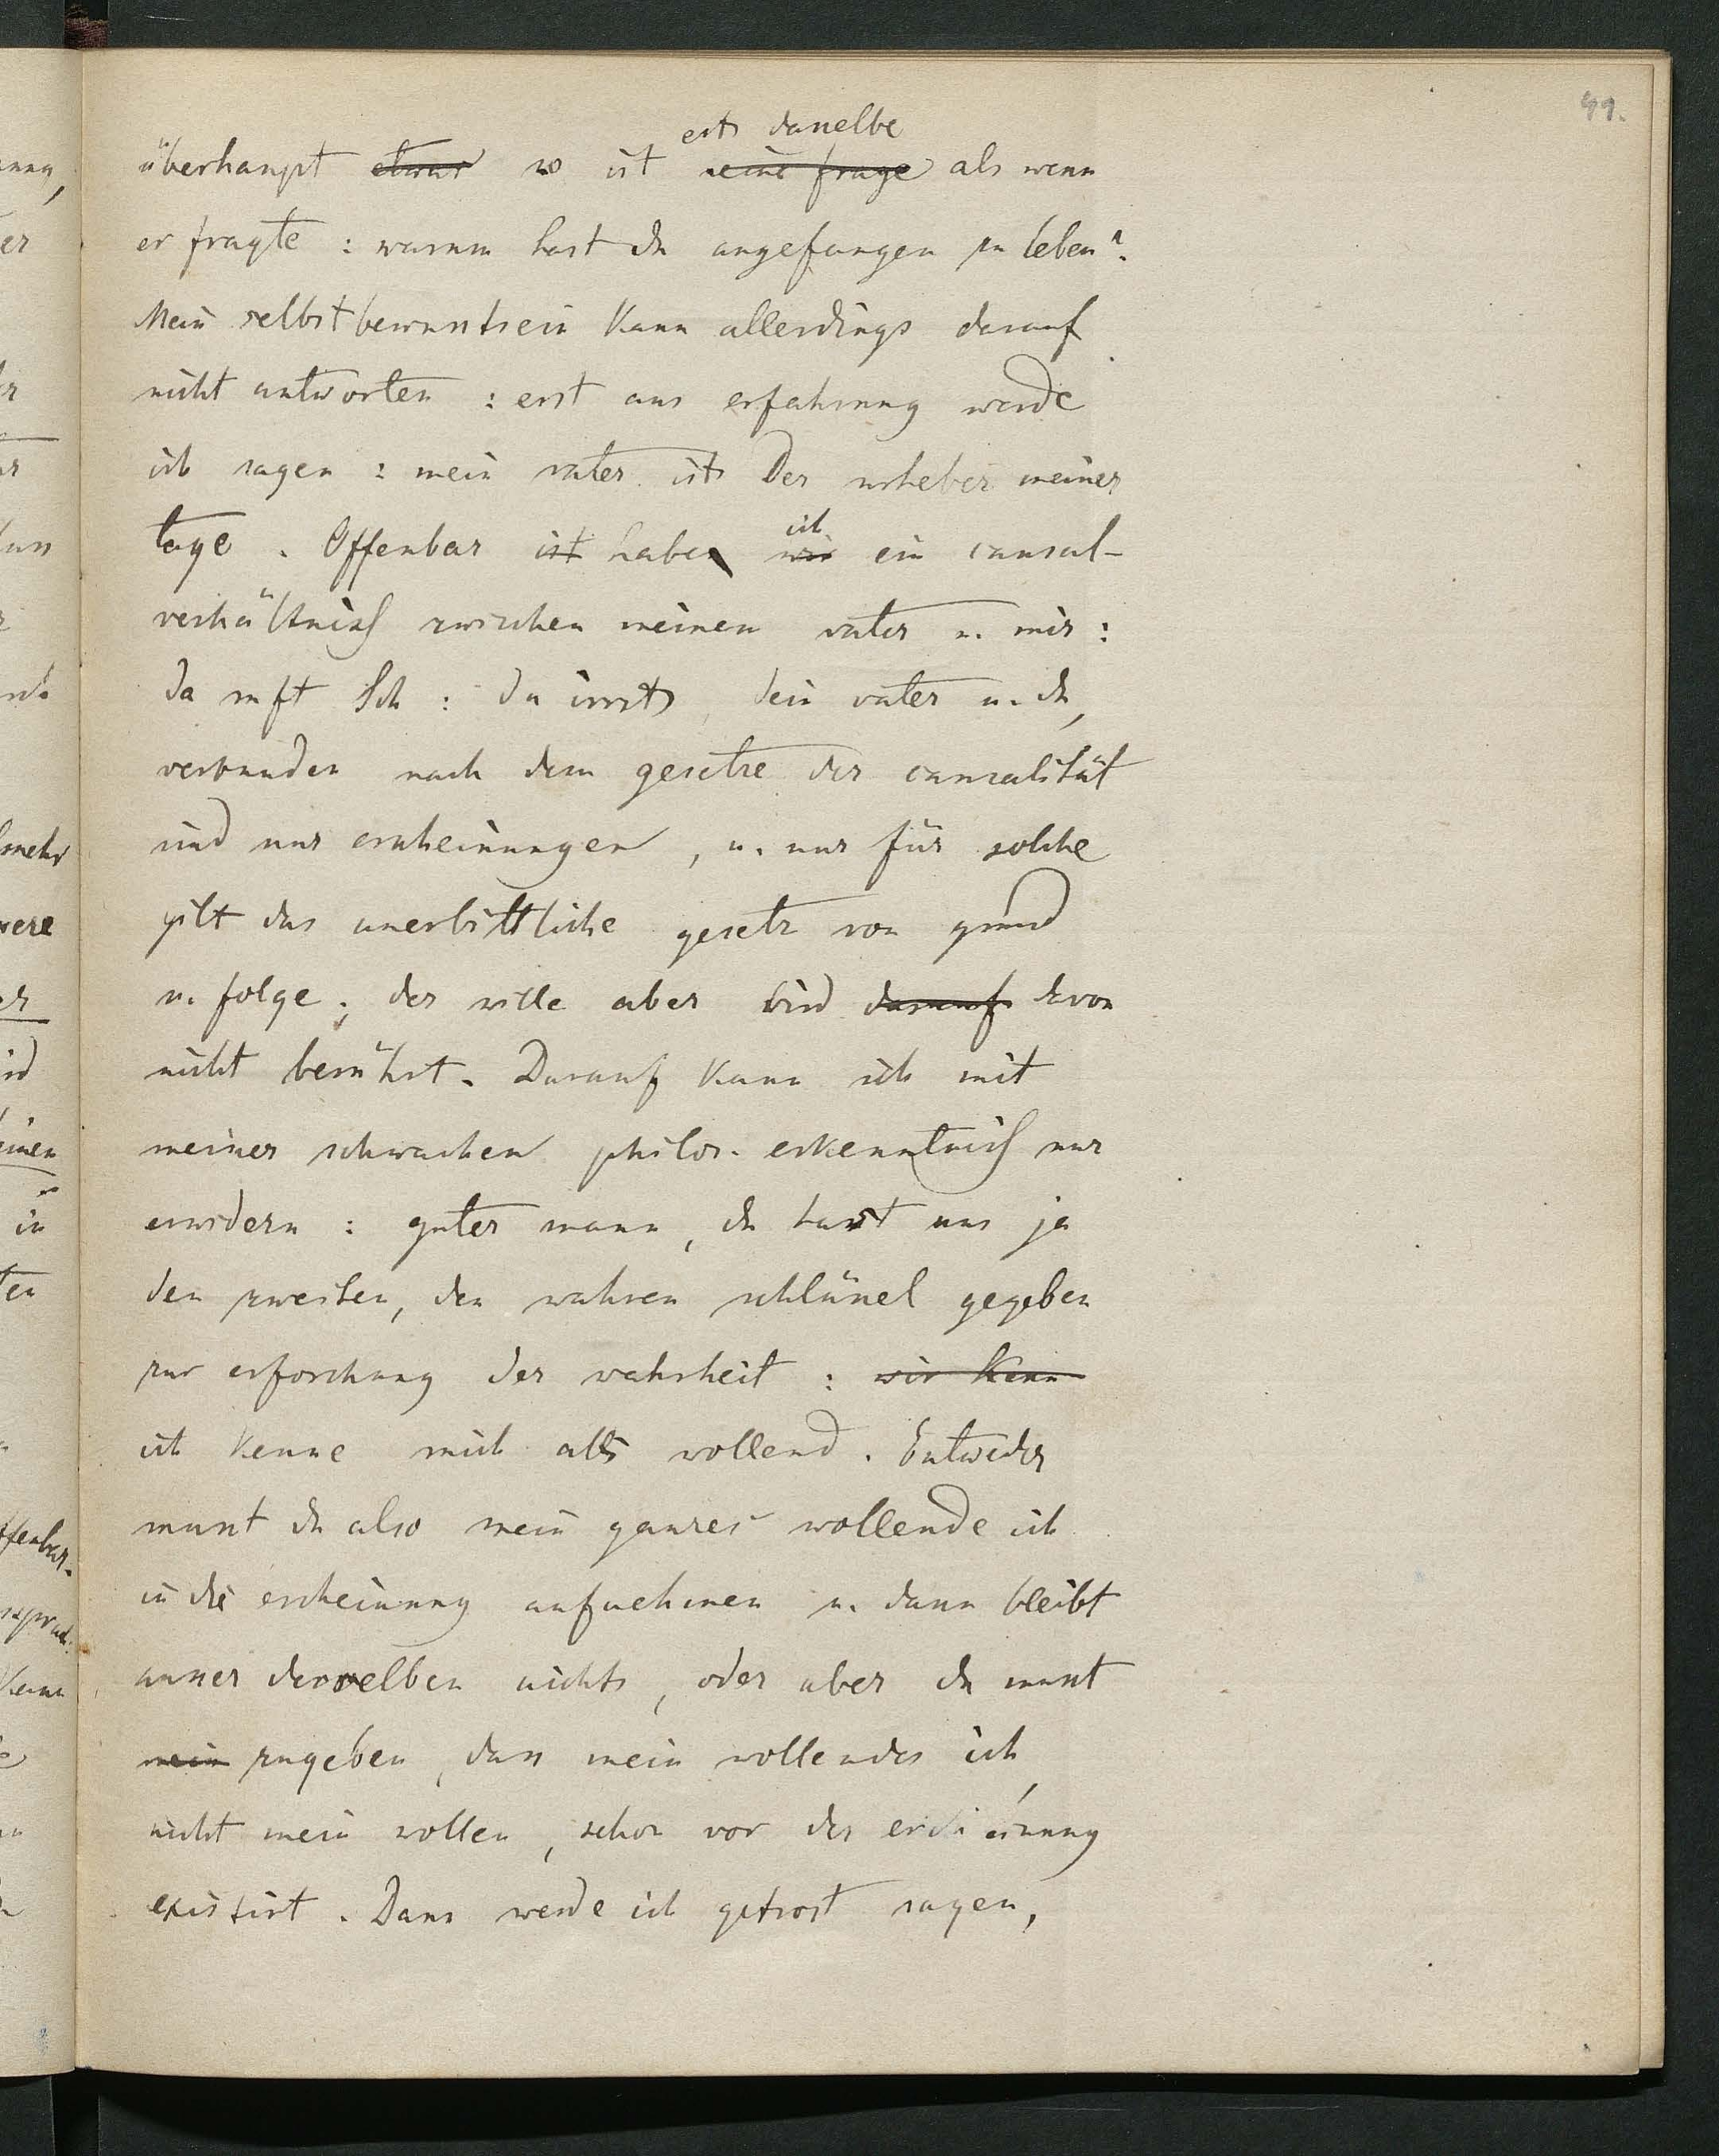 49.
es dasselbe
überhaupt etwas so ist seine frage als wenn
er fragte : warum hast du angefangen zu leben?
Mein selbstbewusstsein kann allerdings darauf
nicht antworten : erst aus erfahrung werde
ich sagen : mein vater ist der urheber meiner
ich
tage . Offenbar ist haben wir ein causal-
verhältniss zwischen meinen vater u. mir :
da ruft Sch : du irrst, dein vater u. du,
verbunden nach dem gesetze der causalität
sind nur erscheinungen , u. nur für solche
gilt das unerbittliche gesetz von grund
u. folge ; der wille aber wird darauf davon
nicht berührt . Darauf kann ich mit
meiner schwachen philos. erkenntniss nur
erwidern : guter mann , du hast uns ja
den zweiten, den wahren schlüssel gegeben
zur erforschung der wahrheit : wir kenn
ich kenne mich als wollend . Entweder
musst du also mein ganzes wollende ich
in die erscheinung aufnehmen u. dann bleibt
ausser derselben nichts , oder aber du musst
mein zugeben , dass mein wollendes ich,
nicht mein wollen , schon vor der erscheinung
existirt . Dann werde ich getrost sagen,